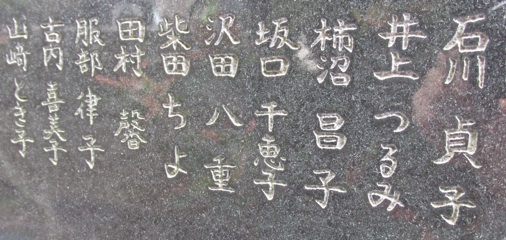 石川 貞子
井上 つるみ
柿沼 昌子
坂口 千恵子
沢田 八重
柴田 ちよ
田村 馨
服部 律子
古内 喜美子
山崎 とき子